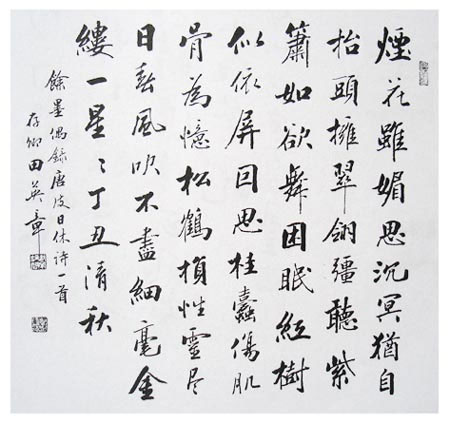 煙花雖媚思沉冥猶自
抬頭擁翠翎彊聽紫
簫如欲舞困眠紅樹
似依屏回思桂蠹傷肌
骨為憶松鶴損性靈尽
日春風吹不盡細毫金
縷一星〻丁丑清秋
餘墨偶錄唐皮日休詩一首
存卿田英章